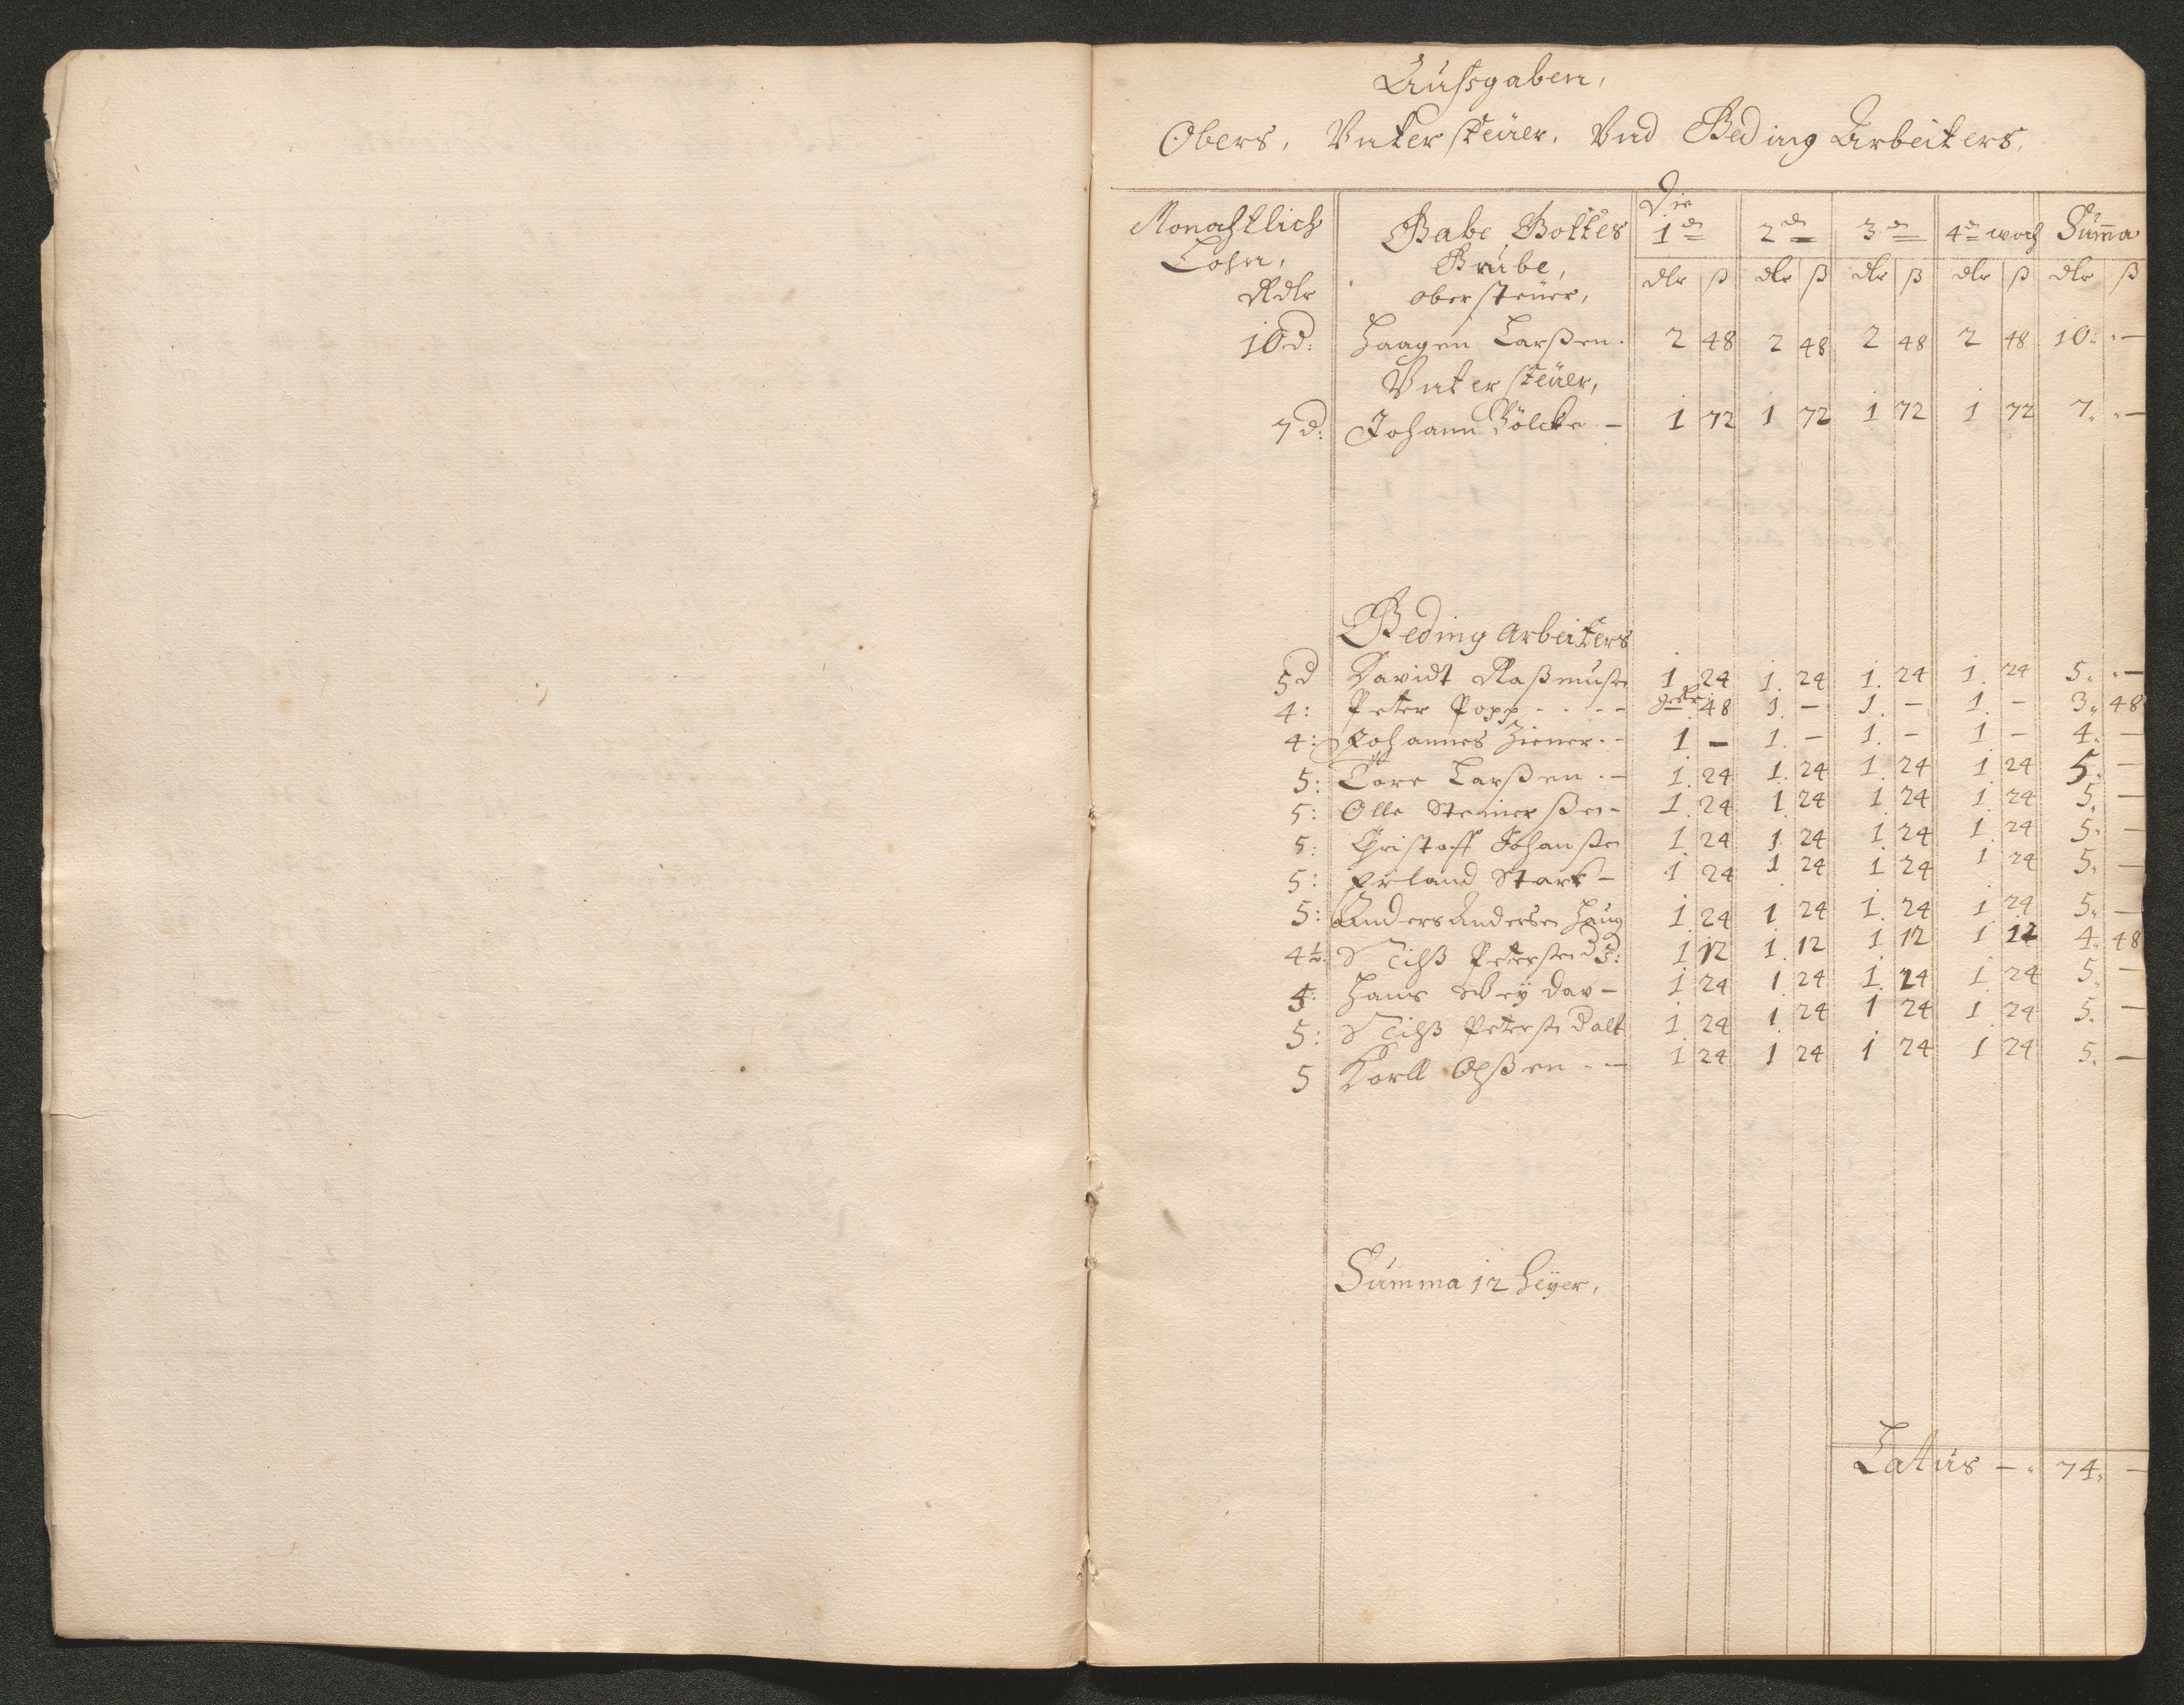 Außgaben,
Obers, Untersteüer, Und Beding Arbeiters,
Monahtlich Lohn, Rdlr | Gabe Gottes Grübe, | Die 1 d | 2 d | 3 d | 4 d woch | Sum̄a
obersteüer, | dlr ß | dlr ß | dlr ß | dlr ß | dlr ß
10 d: Haagen Larßen. 2 48 2 48 2 48 2 48 10: —
Untersteüer,
7 d: Johann Völcke — 1 72 1 72 1 72 1 72 7. —
Beding Arbeiters
5 d Davidt Raßmußen 1 24 1. 24 1. 24 1. 24 5. —
4: Peter Popp - - - - 48 1 — 1. — 1. — 3. 48
4: Johannes Ziener - - 1 — 1. — 1. — 1 — 4. —
5: Tore Larßen - — 1. 24 1. 24 1. 24 1 24 5. —
5: Olle Steinerßen - 1. 24 1 24 1. 24 1. 24 5. —
5: Christoff Johanßen 1 24 1. 24 1. 24 1. 24 5. —
5: Erland Stark — 1 24 1 24 1 24 1 24 5. —
5: Anders Anderßen Haug 1. 24 1 24 1. 24 1. 24 5. —
4½: Nilß Peterßen d J: 1 12 1. 12 1 12 1 12 4. 48
5: Hans Weydar — 1 24 1 24 1. 24 1. 24 5. —
5: Nilß Peterßen d alt 1 24 1. 24 1 24 1 24 5. —
5 Torll Olßen - — 1 24 1 24 1 24 1 24 5. —
Summa 12 heÿer,
Latus — 74. —